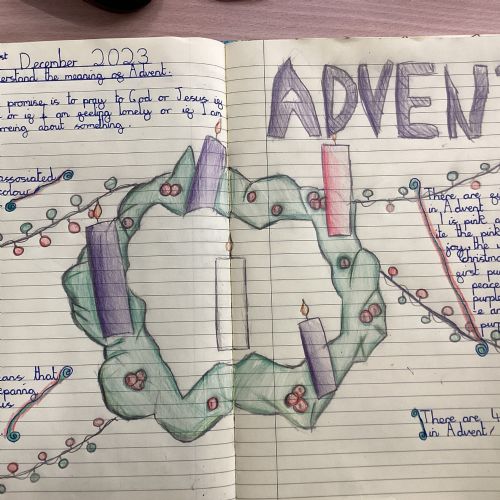 st December 2023
erstand the meaning of Advent.
promise is to pray to God or Jesus if
or if I am feeling lonely or if I am
about something.
associated
colour
ans that
eparing
us
ADVENT
There are
in Advent
is pink a
ite the pink
joy, the
christma
first pur
peace
purple
e an
pur
There are 4
in Advent